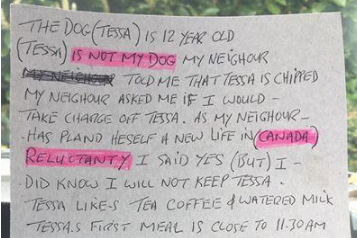 THE DOG (TESSA) IS 12 YEAR OLD
(TESSA) IS NOT MY DOG MY NEIGHOUR
MY NEIGHOUR TOLD ME THAT TESSA IS CHIPPED
MY NEIGHOUR ASKED ME IF I WOULD -
TAKE CHARGE OFF TESSA. AS MY NEIGHOUR -
. HAS PLAND HESELF A NEW LIFE IN (CANADA)
RELUCTANTY I SAID YES (BUT) I -
. DID KNOW I WILL NOT KEEP TESSA.
TESSA LIKE.S TEA COFFEE & WATERED MILK
TESSA.S FIRST MEAL IS CLOSE TO 11.30AM